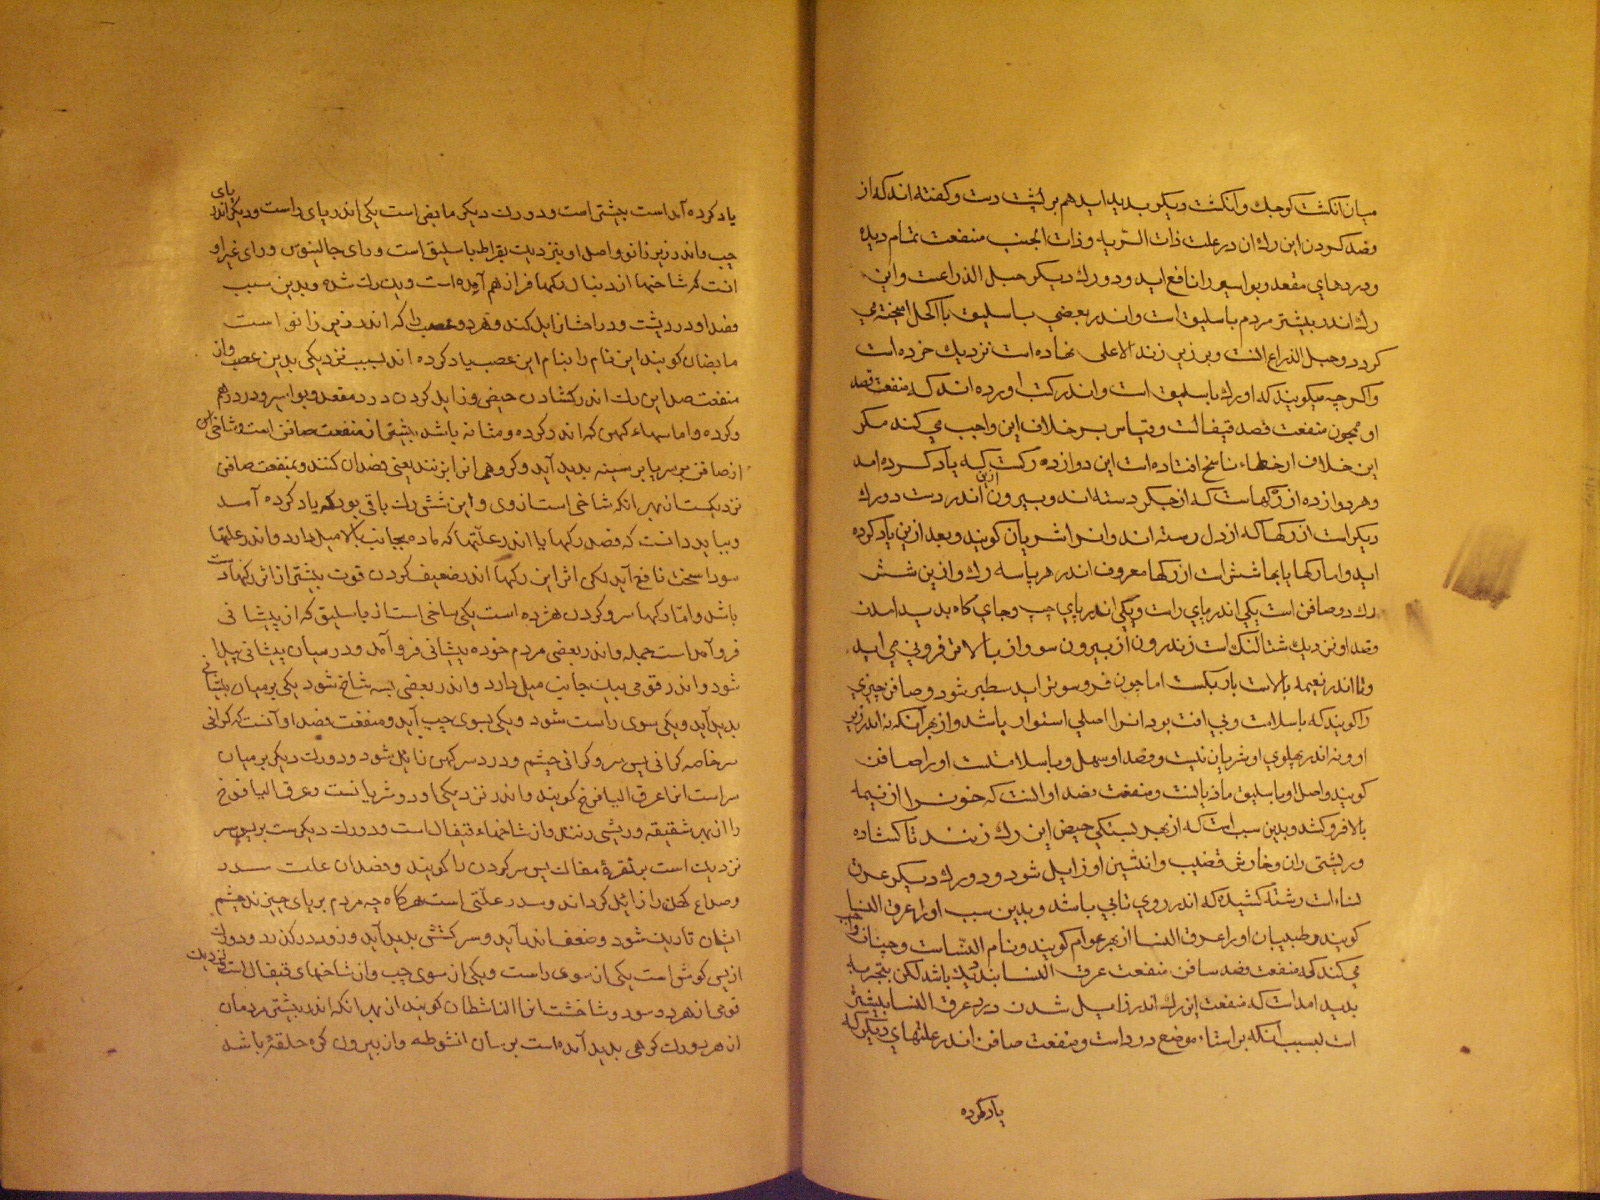 میان انگشت کوچک و انگشت دیگر بدید اید هم بر پشت دست و کفته اند که از
فصد کردن این رک ان در علت ذات الریه و ذات الجنب منفعت تمام دیده
و دردهای مقعد و بواسیر را نافع اید و دو رک دیکر حبل الذراعت و این
رک اندر بیشتر مردم باسلیق است و اندر بعضی باسلیق با اکحل امیخته
کردد و حبل الذراع الست و بر زبر زند الاعلی نهاده است نزدیک خرده است
و اکرچه میکویند که او رک باسلیق است و اندر کتب اورده اند که منفعت فصد
او همچون منفعت فصد قیفالست و قیاس بر خلاف این واجب می کند مکر
این خلاف از خطاء ناسخ افتاده است این دوازده رکست که یاد کرده امد
و هر دوازده از رکهاست که از جکر رسته اند و بیرون ازین اندر دست دو رک
دیکر است از رکها که از دل رسته اند و انرا شریان کویند و بعد ازین یاد کرده
اید و اما رکها پایها شش است از رکها معروف اندر هر پا سه رک و ازین شش
رک دو صافن است یکی اندر پای راست و یکی اندر پای چپ و جای کاه بدید امدن
و فصد او نزدیک شتالنک است زاندرون از بیرون سو و از بالا تر فرونی می اید
و تا اندر نیمه بالاست باریکست اما چون فروسوتر اید سطبر شود و صافن چیزی
را کویند که باسلامت و بی افت بود انرا اصلی استوار باشد و از بهر آنکه نه اندر زیر
او و نه اندر پهلوی او شریان نیست و فصد او سهل و باسلامتست او را صافن
کویند و اصل او باسلیق ماذیانست و منفعت فصد او انست که خون را از نیمه
بالا فرو کشد و بدین سبب است که از بهر بستکی حیض این رک زنند تا کشاده
و ریشی ران و خارش قضیب و انثیین او زایل شود و دو رک دیکر عرق
نساء است رشته کشیده که اندر روی تابی باشد و بدین سبب او را عرق النسا
کویند و طبیبان او را عرق النسا از بهر عوام کویند و نام النساست و چنان واجب
می کند که منفعت فصد صافن منفعت عرق النسا نزدیک باشد لکن بتجربه
بدید امدست که منفعت این رک اندر زایل شدن درد عرق النسا بیشتر
است بسبب آنکه براستاء موضع درد است و منفعت صافن اندر علتهای دیکر که
یاد کرده
یاد کرده آمداست بیشتر است و دو رک دیکر مابض است یکی اندر پای راست و دیکر اندر پای
چپ و اندر زیر زانو و اصل او بنزدیک بقراط باسلیق است و رای جالینوس و رای غیر او
انست که شاخها از دنبال رکها فراز هم آمده است و یک رک شده و بدین سبب
فصد او درد پشت و درد احشا زایل کند و هر دو عصب را که اندر زیر زانو است
مابضان کویند این نام را بنام این عصب یاد کرده اند بسبب نزدیکی بدین عصب و از
منفعت فصد این رک اندر کشادن حیض و زایل کردن درد مقعد و بواسیر و درد رحم
و کرده و اماسهاء کهن که اندر کرده و مثانه باشد بیشتر از منفعت صافن است و شاخی این
از صافن بر سر پا بر سینه بدید آید و کروهی انرا نیز زنند یعنی فصدان کنند و بمنفعت صافن
نزدیکست از بهر انکه شاخی است از وی و این شش رک باقی بود که یاد کرده آمد
و بباید دانست که فصد رکها پا اندر علتها که ماده بجانب بالا میل دارد و اندر علتها
سودا سخت نافع آید لکن اثر این رکها اندر ضعیف کردن قوت بیشتر از اثر رکها دست
باشد و اما رکها سر و کردن هژده است یکی شاخی است از باسلیق که از پیشانی
فرو آمده است جمله و اندر بعضی مردم خود به پیشانی فرو آمد و در میان پیشانی پیدا
شود و اندر قومی بیک جانب میل دارد و اندر بعضی بسه شاخ شود یکی بر میان پیشانی
بدید آید و یکی سوی راست شود و یکی بسوی چپ آید و منفعت فصد او آنست که کرانی
سر خاصه کرانی پس سر و کرانی چشم و درد سر کهن زایل شود و دو رک دیکر بر میان
سر است انرا عرق الیافوخ کویند و اندر نزدیکی او دو شریانست و عرق الیافوخ
را از بهر شقیقه و ریشی زنند و از شاخهاء قیفال است و دو رک دیکرست بر پس سر
نزدیک است بر نقرهٔ مغاک پس سر کردن را کویند و فصدان علت سدر
و صداع کهن را زائل کرداند و سدر علّتی است هرکاه چه مردم بر پای خیزند چشم
ایشان تاریک شود و ضعف اندر آید و سرکشتی بدید آید و زود در کذرد و دو رک
از پس کوش است یکی از سوی راست و یکی از سوی چپ و از شاخهای قیفال است نزدیک
قومی از هر دو سو دو شاخشت انرا الناشطان کویند از بهر انکه اندر بیشتر مردمان
از هر دو رک کرهی بدید آمده است برسان انشوطه و از بیرون کره حلقهٔ باشد